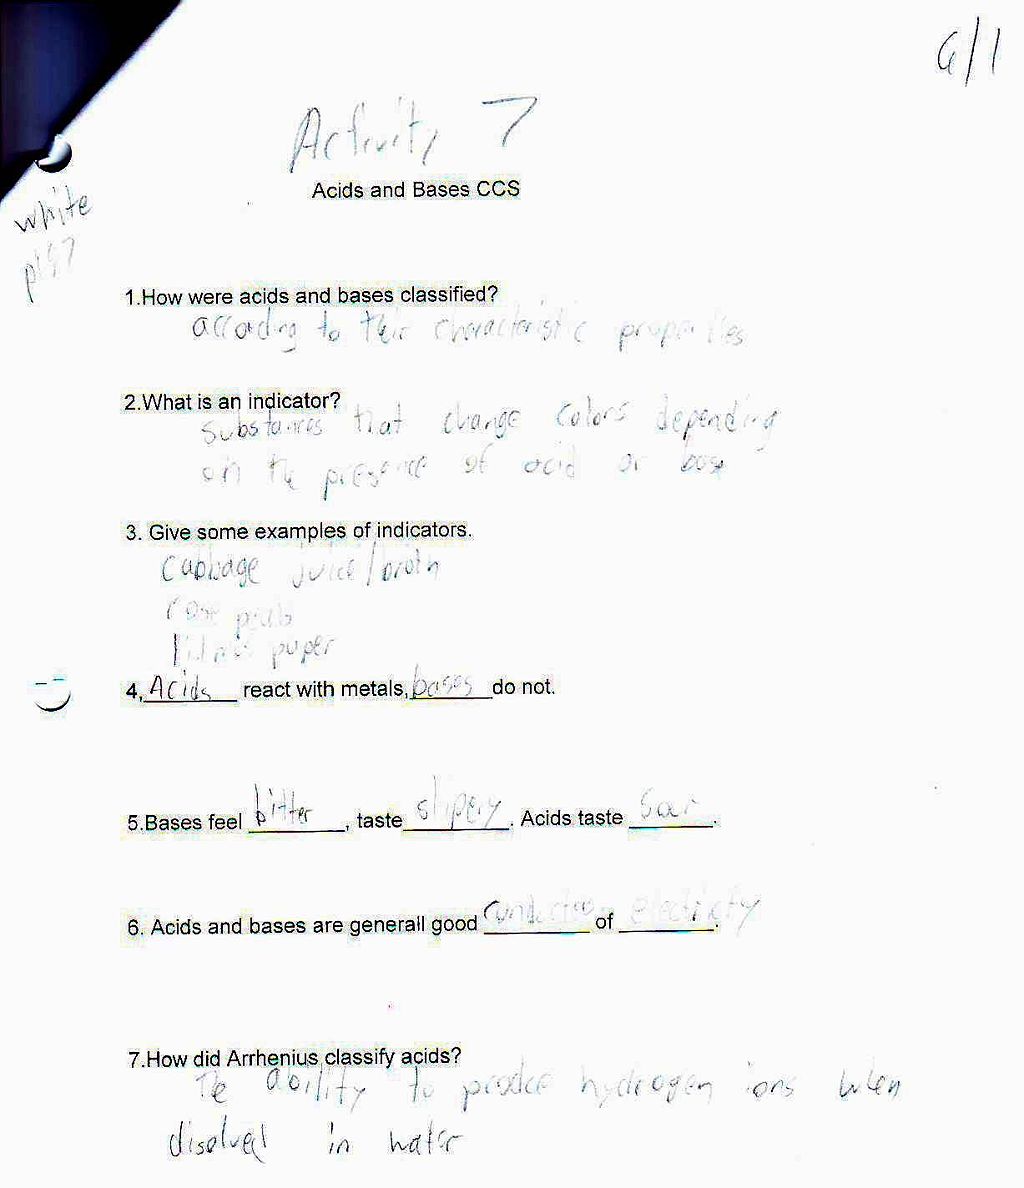 G/1
Activity 7
Acids and Bases CCS
white
1.How were acids and bases classified?
according to their characteristic properties
2.What is an indicator?
substances that change colors depending
on the presence of acid or base
3. Give some examples of indicators.
Cabbage juice/broth
rose
litmus paper
4, Acids react with metals, bases do not.
5.Bases feel bitter, taste slipery. Acids taste Sour.
6. Acids and bases are generall good of .
7.How did Arrhenius classify acids?
The ability to produce hydrogen ions when
disolved in water